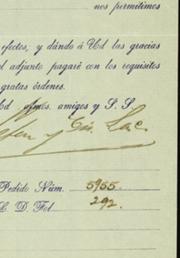 nos permitimos
efectos, y dándo á Ud las gracias
el adjunto pagaré con los requisitos
gratas órdenes.
Ud afmos. amigos y S. S.
y Cia. Suc.
Pedido Núm. 5955
L. D. Fol. 292.